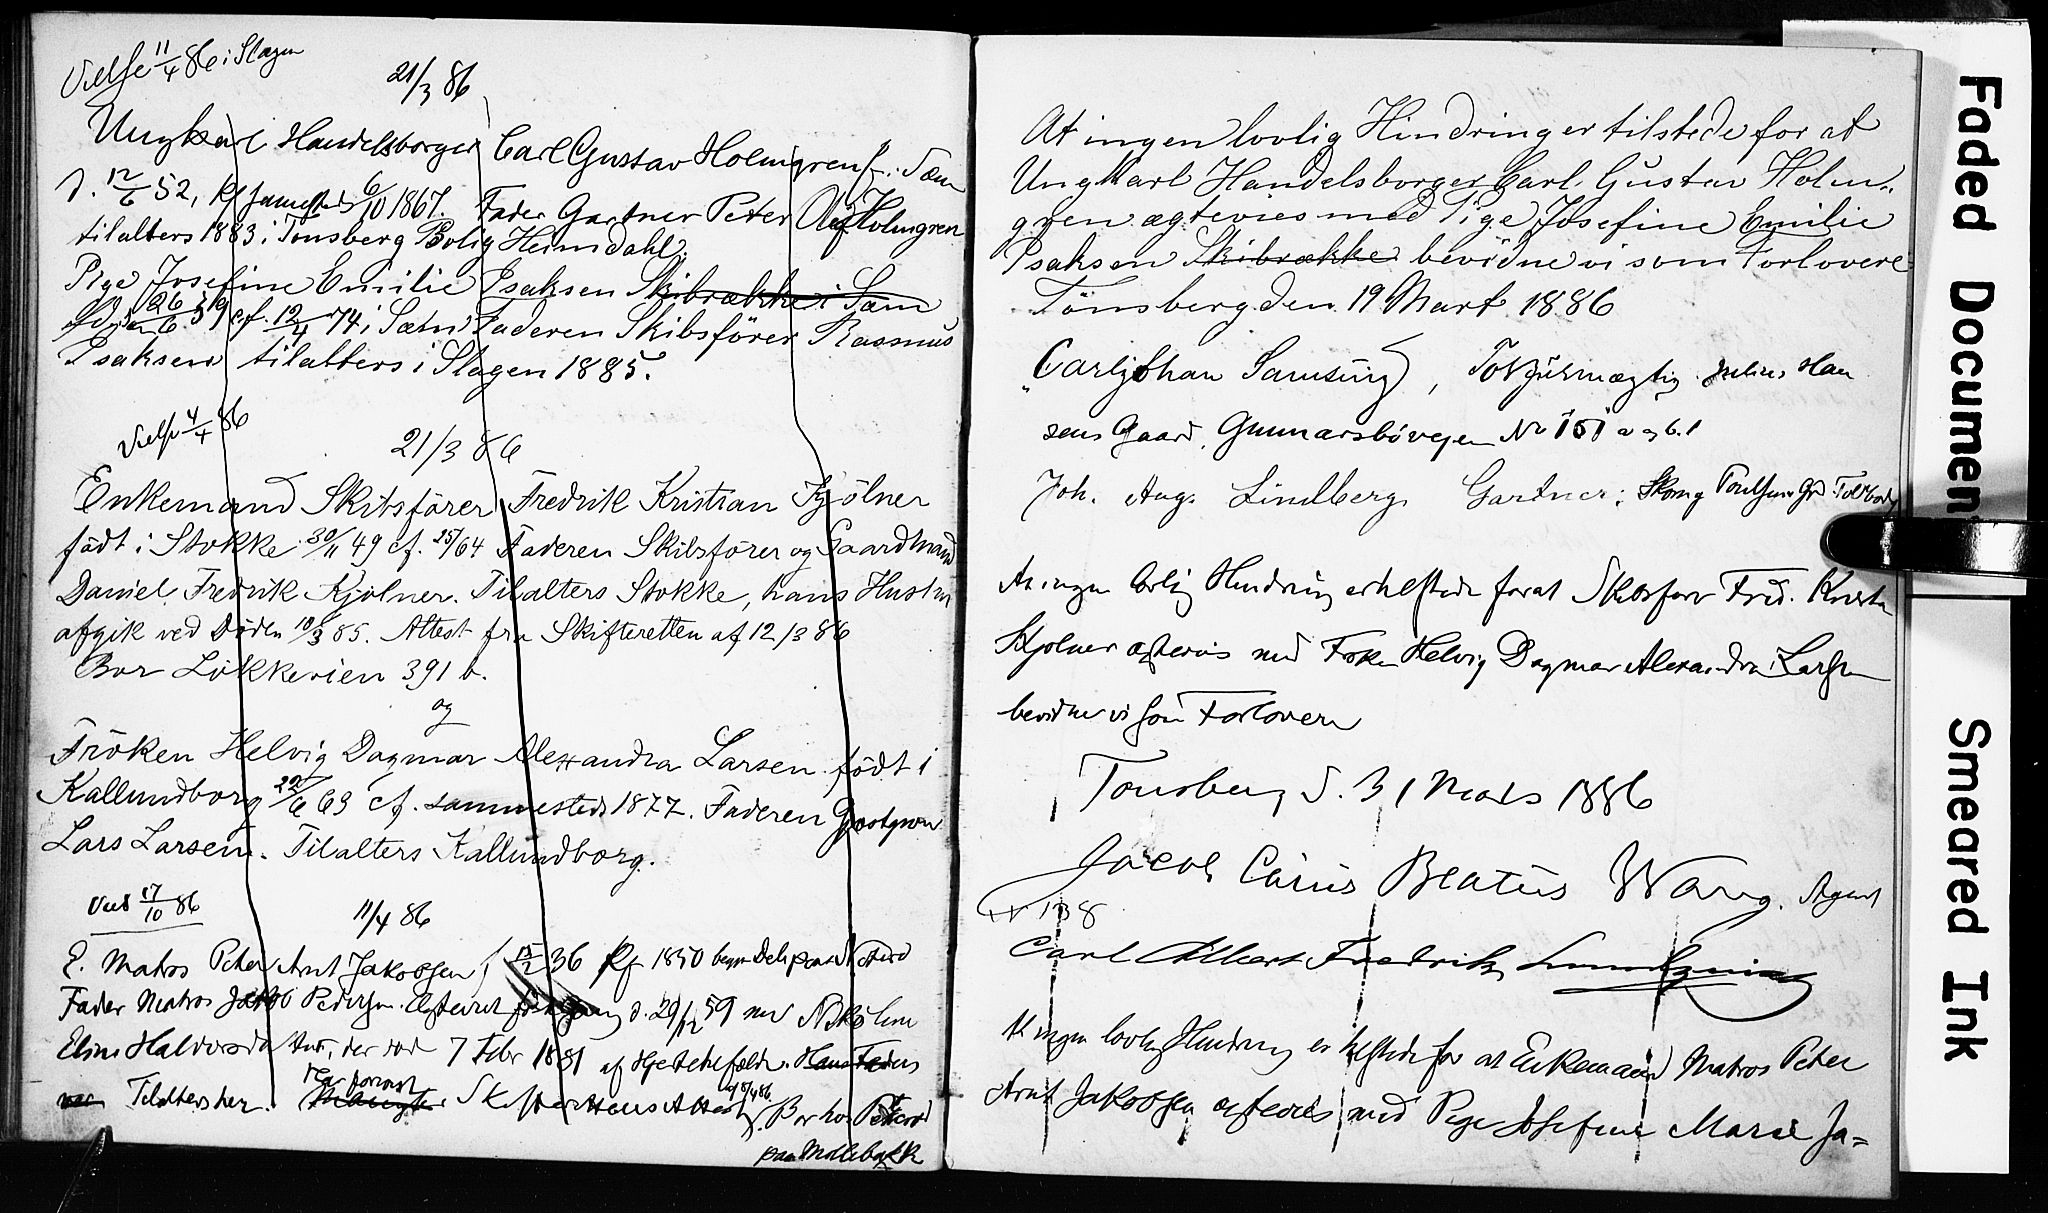 Vielse 11/4 86 i Slagen
21/3 86
Ungkarl Handelsborger Carl Gustav Holmgren f. i Sæm
d. 12/6 52, Kf sammesteds 6/10 1867. Fader Gartner Peter Holmgren
tilalters 1883 i Tönsberg Bolig Heimdahl.
Pige Josefine Emilie Isaksen Skibrække i Sæm
26/6 59 cf. 12/4 74 i Sæm Faderen Skibsförer Rasmus
Isaksen tilalters i Slagen 1885.
Vielse 4/4 86
21/3 86
Enkemand Skibsförer Fredrik Kristian Kjölner
födt i Stokke 30/11 49 cf. 25/64 Faderen Skibsförer og Gaardmand
Daniel Fredrik Kjölner. Tilalters Stokke, hans Hustru
afgik ved Döden 10/3 85. Attest fra Skifteretten af 12/3 86
Bor Lökkeveien 391 b.
og
Fröken Helvig Dagmar Alexandra Larsen födt i
Kallundborg 22/6 63 cf. sammesteds 1877. Faderen
Lars Larsen. Tilalters Kallundborg.
Viet 17/10 86
11/4 86
E. Matros Peter Arnt Jakobsen f 36 Kf 1850
Fader Matros Jakob Pedersen. d. 29/12 59 med
Eline Halvorsdatter, der död 7 Febr 1881 af Hans Faders
var Tilalters her. Skifterettens Attest 86. Bor hos
paa Möllebakk
At ingen lovlig Hindring er tilstede for at
Ungkarl Handelsborger Carl Gustav Holm-
gren ægtevies med Pige Josefine Emilie
Isaksen Skibrække bevidne vi som Forlovere
Tönsberg den 19 Mart 1886
Carl Johan Samsing, Toldfuldmægtig Julius Han
sens Gaard, Gunnarsbövejen No 151 a og b.1
Joh. Aug. Lindberg Gartner: Skomg Poulsens Gd Toldbod
At ingen lovlig Hindring er tilstede for at Skibsförer Fred. Kristian
Kjölner ægtevies med Fröken Helvig Dagmar Alexandra Larsen
bevidne vi som Forlovere
Tönsberg d. 31 Marts 1886
Jacob Carius Beatus Wang. Agent
N 138
Carl Albert Fredrik
At ingen lovlig Hindring er tilstede for at Enkemand Matros Peter
Arnt Jakobsen ægtevies med Pige Josefine Marie Ja=
Faded Document
Smeared Ink